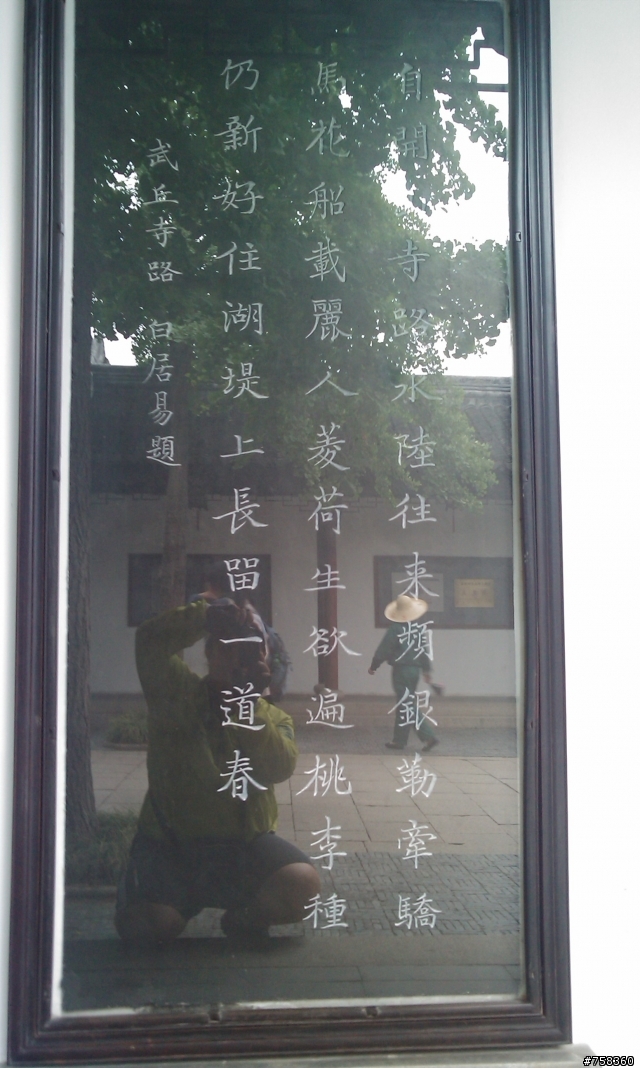 自開寺路水陸往来頻銀勒牽驕
馬花船載麗人菱荷生欲遍桃李種
仍新好住湖堤上長留一道春
武丘寺路 白居易題
#758360